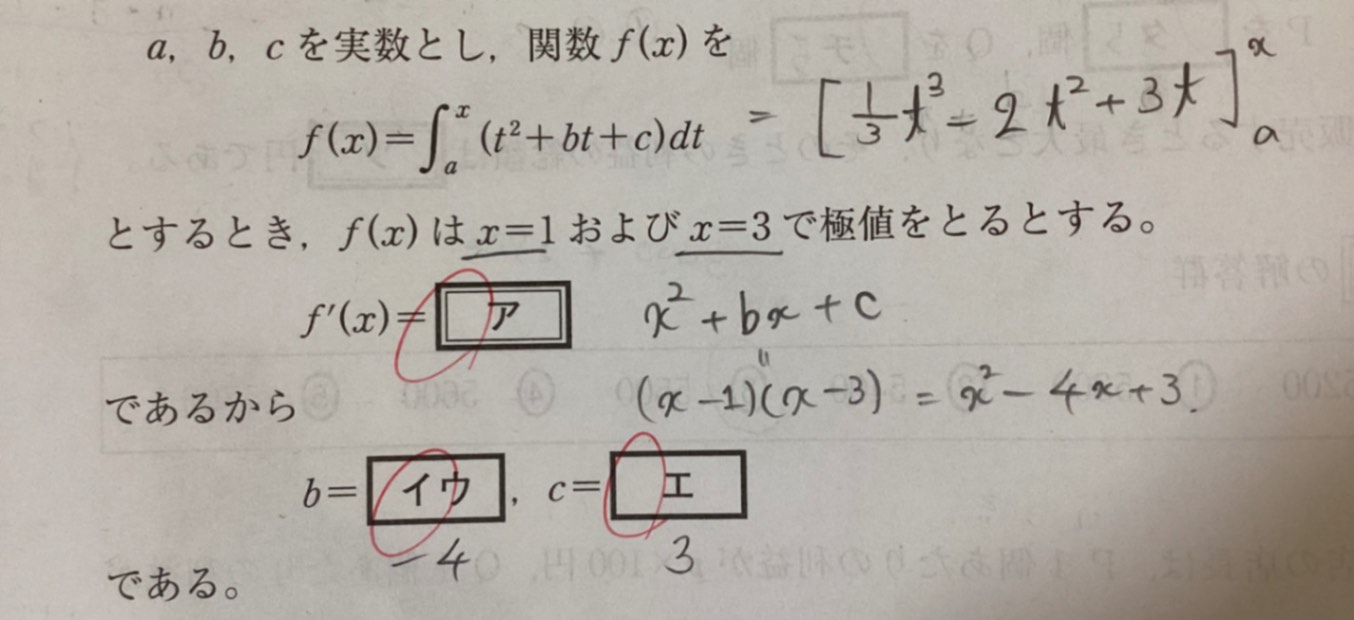 a, b, c を実数とし，関数 f(x) を
f(x)=∫ₐˣ(t²+bt+c)dt = [1/3 t³ - 2t² + 3t]ₐˣ
とするとき，f(x) は x=1 および x=3 で極値をとるとする。
f′(x)= ア x² + bx + c
であるから (x-1)(x-3) = x² - 4x + 3.
b= イウ ，c= エ
-4 3
である。